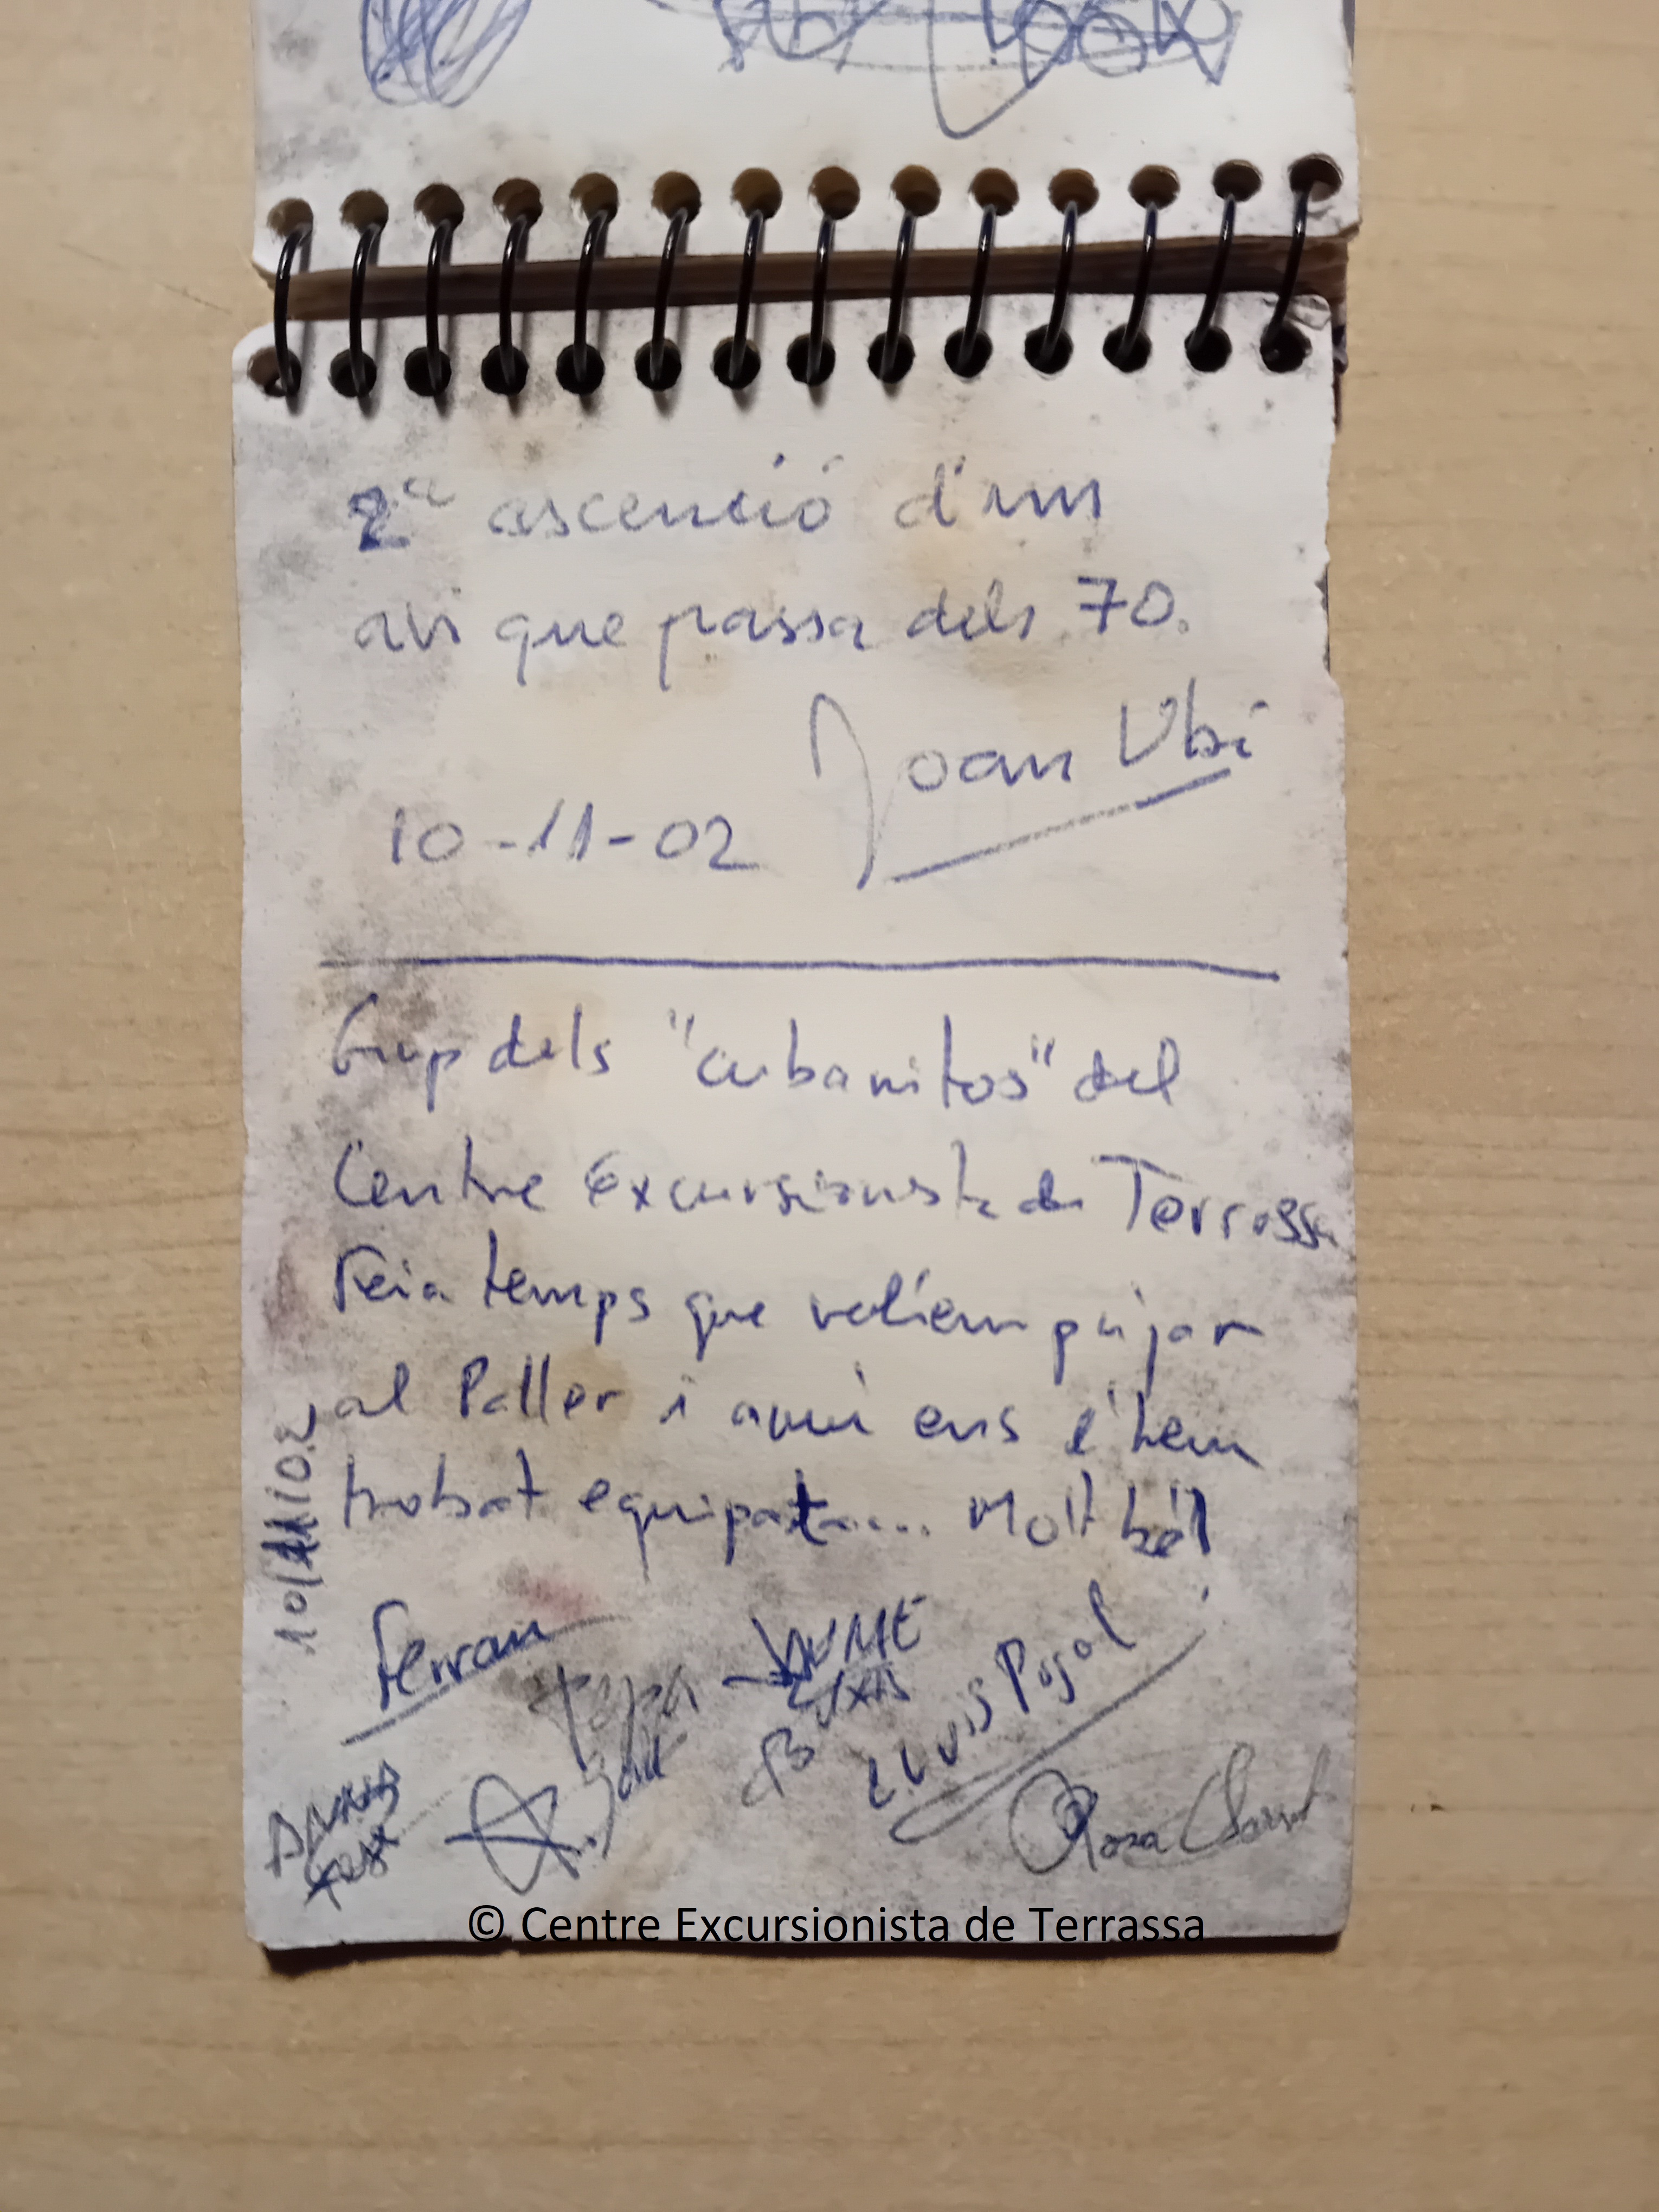 2a ascenció d'un
avi que passa dels 70.
Joan Ubi
10-11-02
Grup dels "cubanitos" del
Centre Excursionista de Terrassa
Feia temps que volíem pujar
al Paller i avui ens l'hem
trobat equipat.... Molt bé!!
10/11/02
Ferran
JAUME
LLUIS Pujol
Rosa
© Centre Excursionista de Terrassa